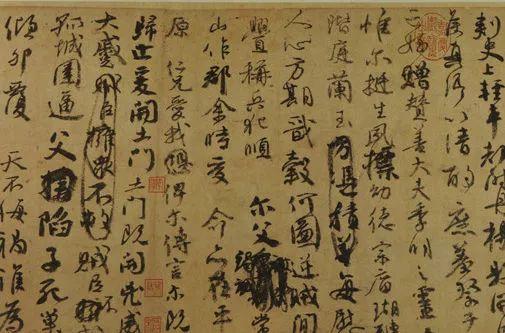 刺史上輕車都尉丹楊縣開
侯真卿以清酌庶羞祭于
亡姪贈贊善大夫季明之靈
惟爾挺生夙標幼德宗廟瑚
階庭蘭玉方憑積善每慰
人心方期戩穀何圖逆賊閒
釁稱兵犯順爾父竭誠常
山作郡余時受命亦在平
原仁兄愛我恐俾爾傳言爾既
歸止爰開土門土門既開兇威
大蹙賊臣擁衆不救賊臣不擁
孤城圍逼父擒陷子死巢
傾卵覆天不悔禍誰為